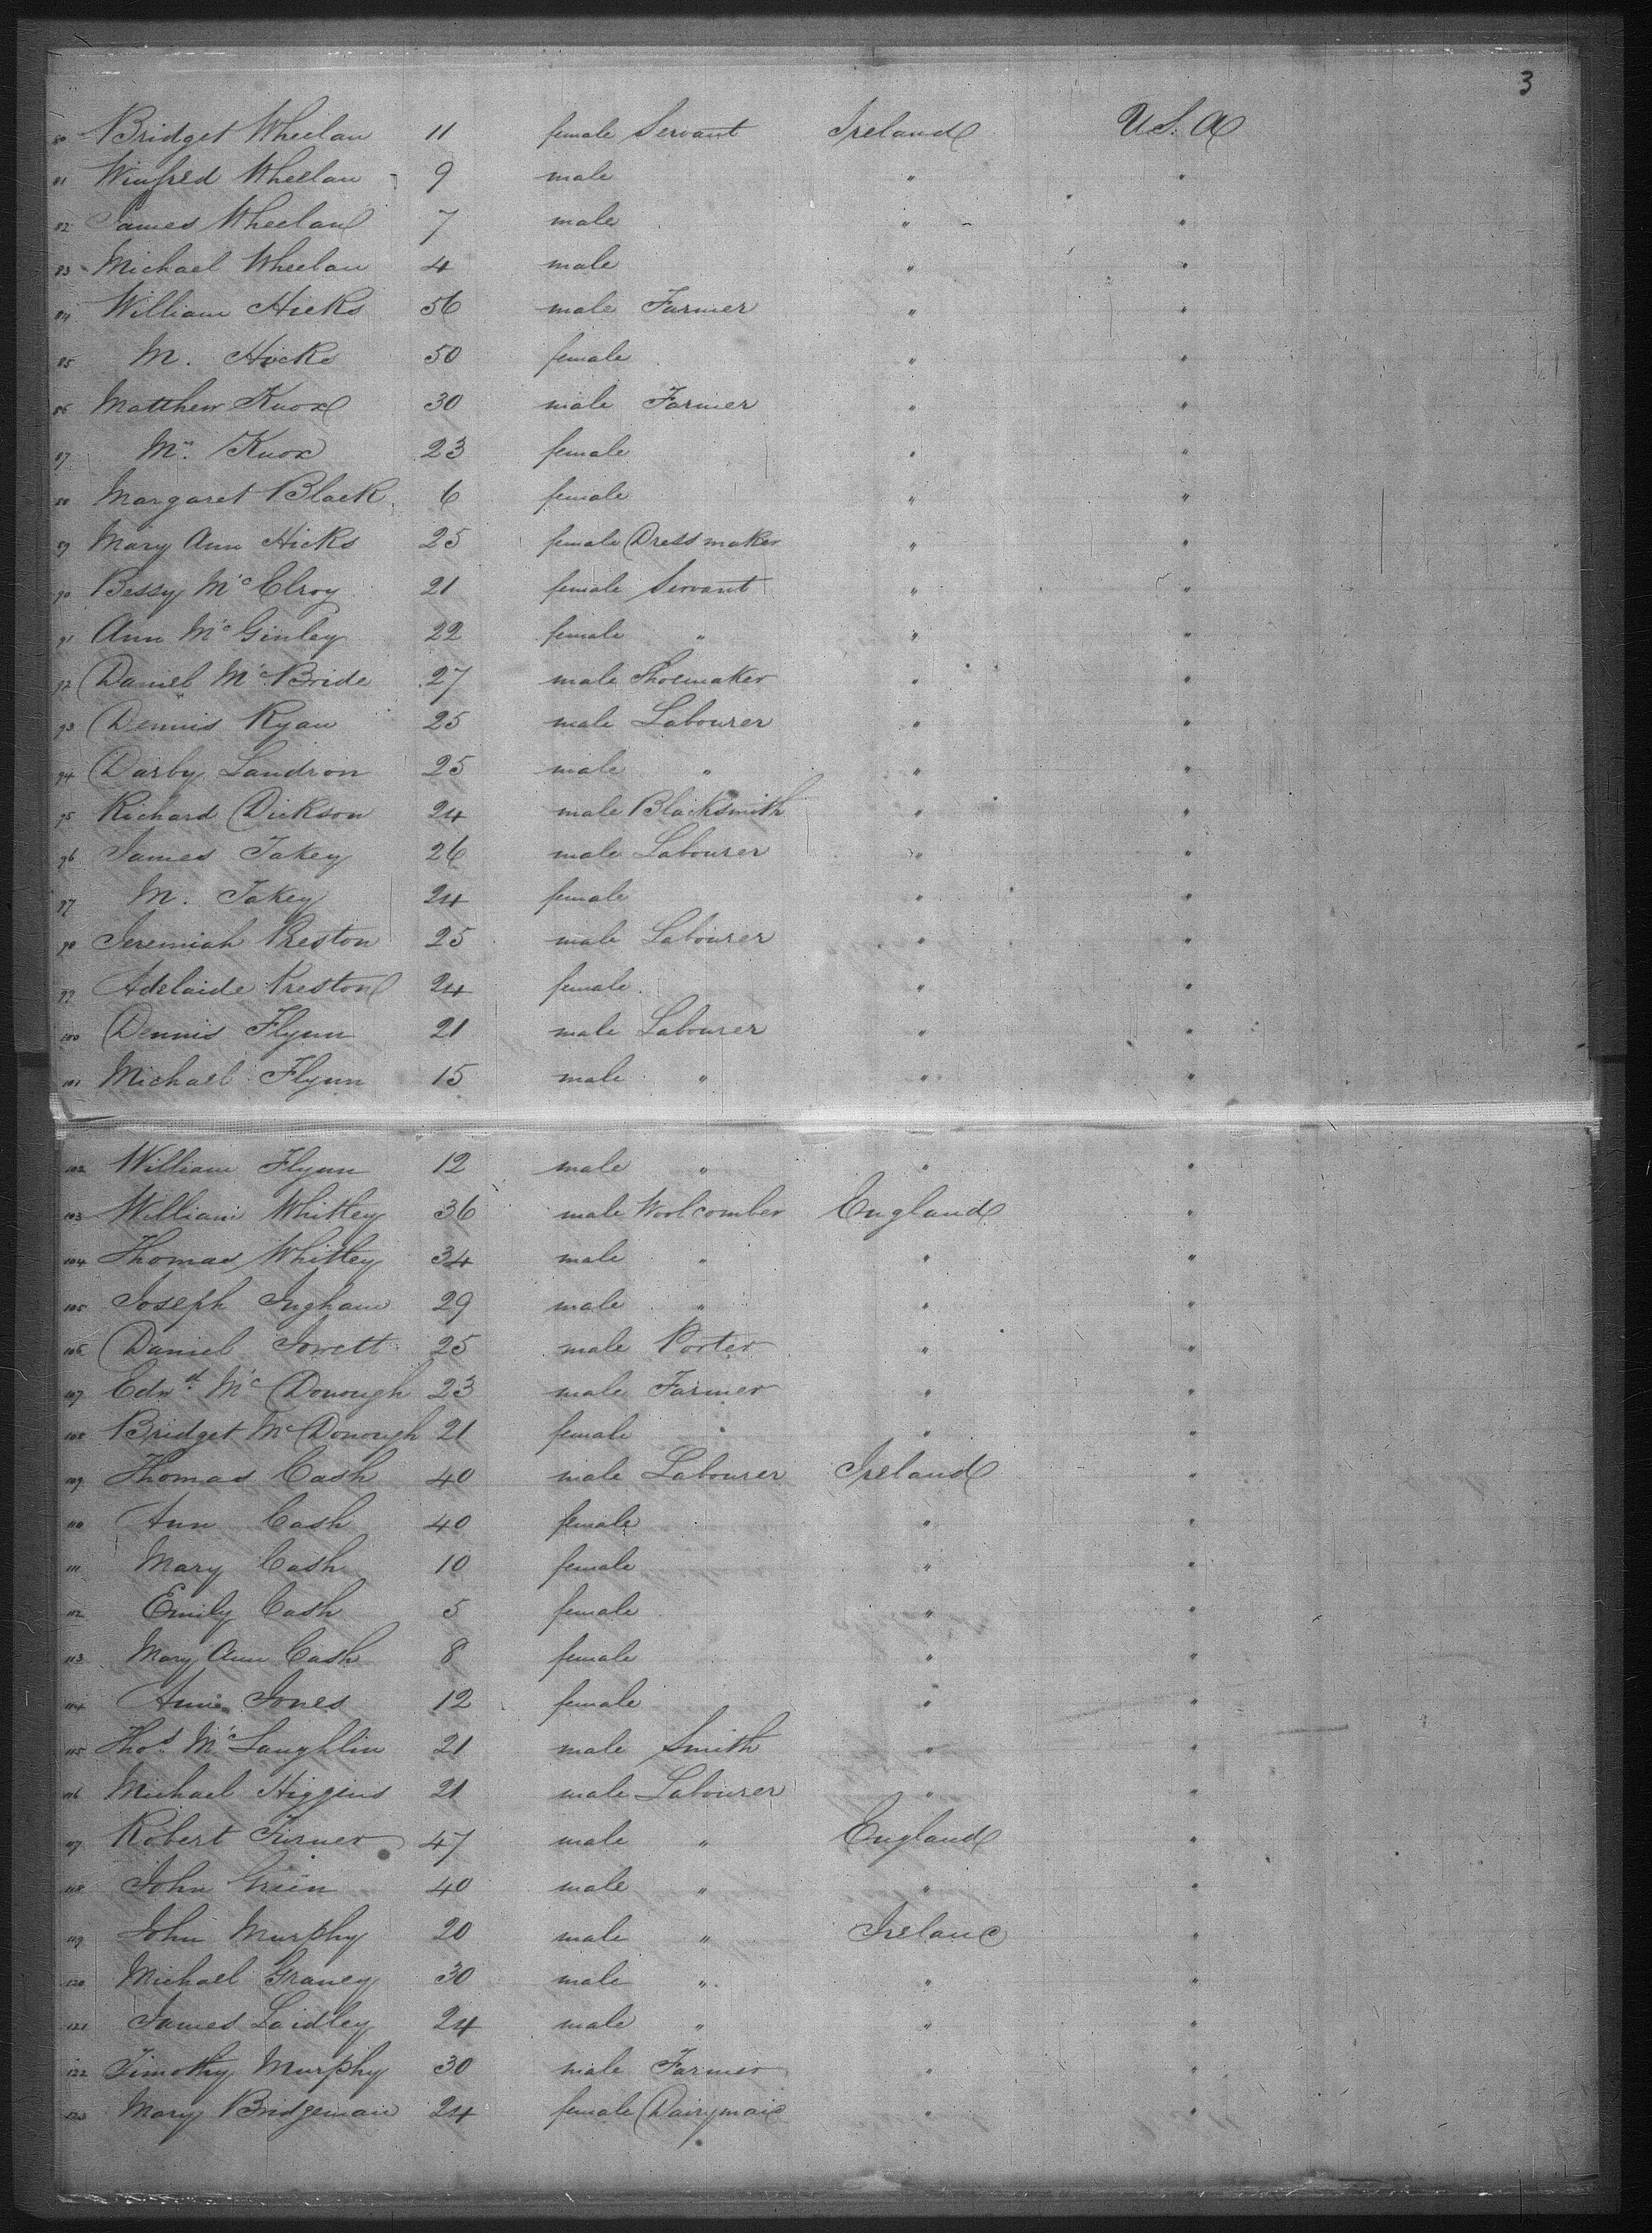 3
80 Bridget Wheelan 11 female Servant Ireland U.S.A
81 Winfred Wheelan 9 male " "
82 James Wheelan 7 male " "
83 Michael Wheelan 4 male " "
84 William Hicks 56 male Farmer " "
85 M. Hicks 50 female " "
86 Matthew Knox 30 male Farmer " "
87 Mrs. Knox 23 female " "
88 Margaret Black 6 female " "
89 Mary Ann Hicks 25 female Dressmaker " "
90 Bessy McElroy 21 female Servant " "
91 Ann McGinley 22 female " " "
92 Daniel McBride 27 male Shoemaker " "
93 Dennis Ryan 25 male Labourer " "
94 Darby Landron 25 male " " "
95 Richard Dickson 24 male Blacksmith " "
96 James Takey 26 male Labourer " "
97 M. Takey 24 female " "
98 Jeremiah Preston 25 male Labourer " "
99 Adelaide Preston 24 female " "
100 Dennis Flynn 21 male Labourer " "
101 Michael Flynn 15 male " " "
102 William Flynn 12 male " " "
103 William Whitley 36 male Woolcomber England "
104 Thomas Whitley 34 male " " "
105 Joseph Ingham 29 male " " "
106 Daniel Jowett 25 male Porter " "
107 Edwd. McDonough 23 male Farmer " "
108 Bridget McDonough 21 female " "
109 Thomas Cash 40 male Labourer Ireland "
110 Ann Cash 40 female " "
111 Mary Cash 10 female " "
112 Emily Cash 5 female " "
113 Mary Ann Cash 8 female " "
114 Annie Jones 12 female " "
115 Thos. McLaughlin 21 male Smith " "
116 Michael Higgins 21 male Labourer " "
117 Robert Turner 47 male " England "
118 John Green 40 male " " "
119 John Murphy 20 male " Ireland "
120 Michael Graney 30 male " " "
121 James Laidley 24 male " " "
122 Timothy Murphy 30 male Farmer " "
123 Mary Bridgeman 24 female Dairymaid " "